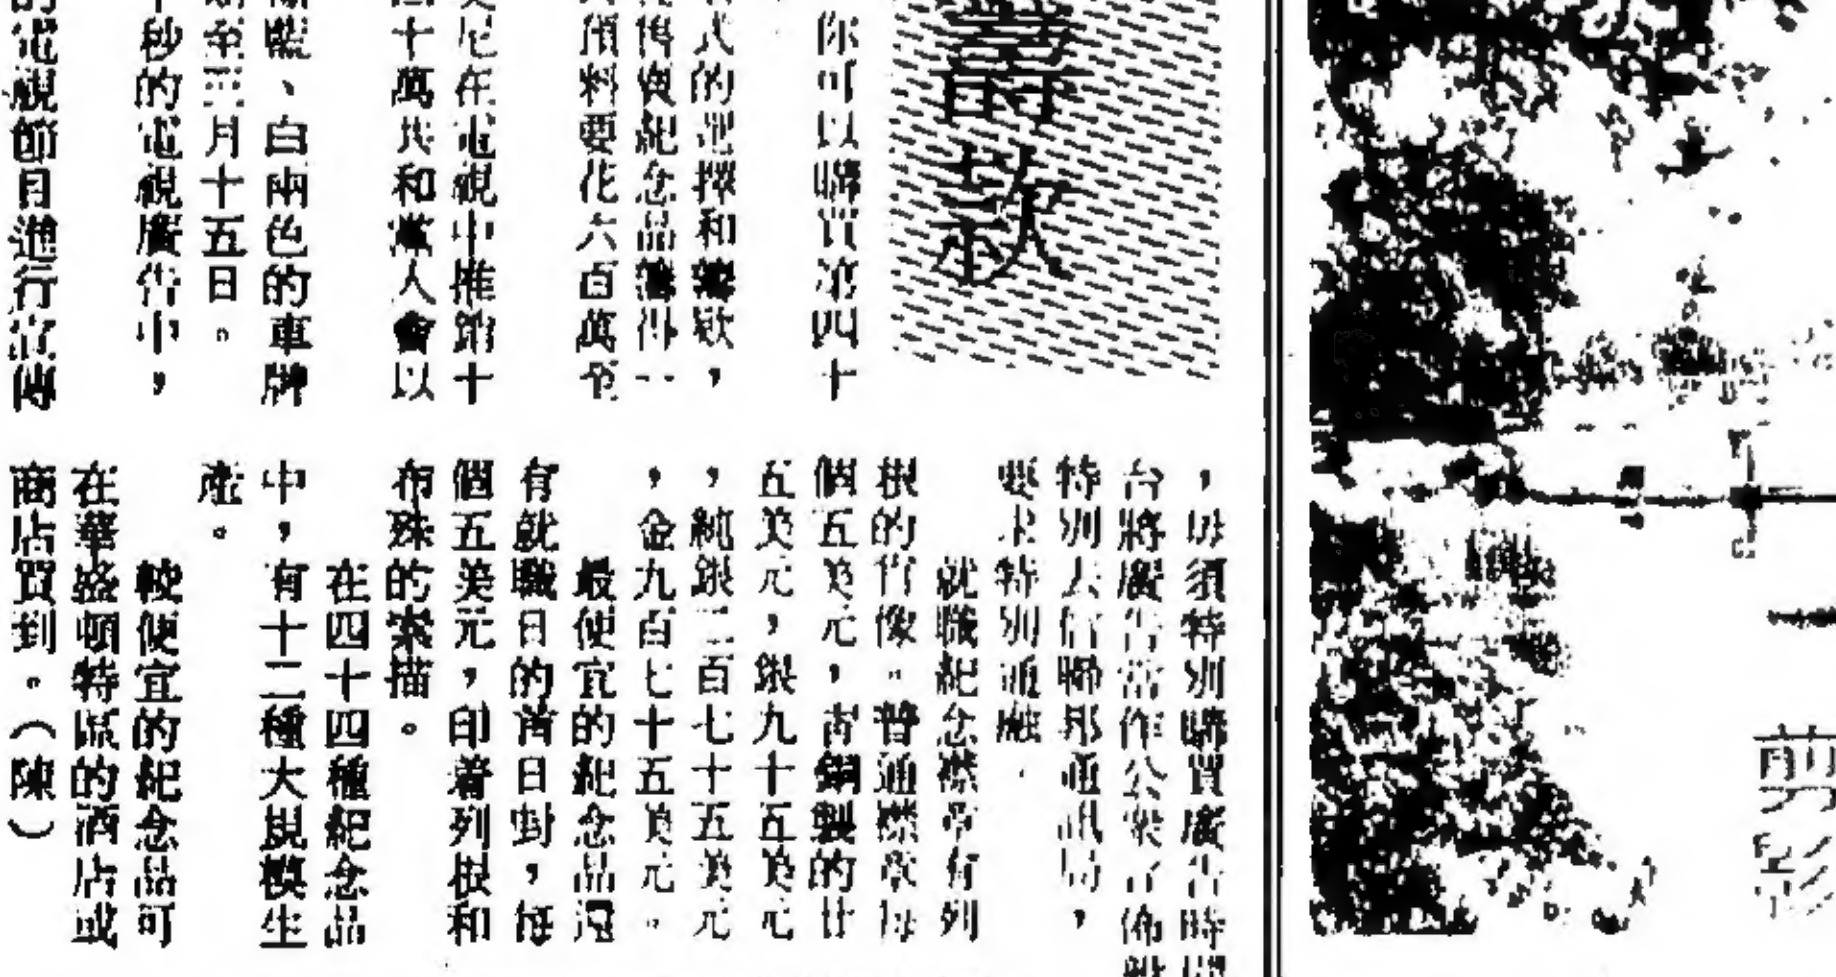 籌款
你可以購買第四十
式的選擇和籌款，
得俾使紀念品籌得一
預料要花六百萬至
尼在電視中推銷十
十萬共和黨人會以
藍、白兩色的車牌
至三月十五日。
秒的電視廣告中，
的電視節目進行宣傳
，毋須特別購買廣告時間
台將廣告當作公眾宣佈般
特別去信聯邦通訊局，
要求特別通融．
就職紀念襟章有列
根的肖像。普通襟章每
個五美元，古銅製的廿
五美元，銀九十五美元
，純銀二百七十五美元
，金九百七十五美元。
最便宜的紀念品還
有就職日的首日封，每
個五美元，印着列根和
布殊的素描。
在四十四種紀念品
中，有十二種大規模生
產。
較便宜的紀念品可
在華盛頓特區的酒店或
商店買到。（陳）
剪影